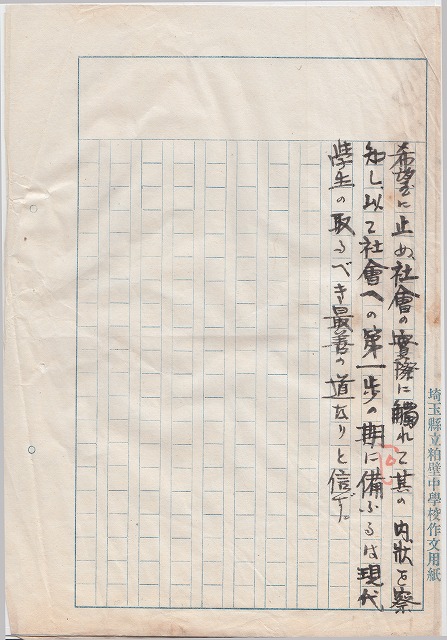 希望に止め、社會の實際に觸れて其の内狀を察
知し、以て社會への第一歩の期に備ふるは現代
學生の取るべき最善の道なりと信ず。
埼玉縣立粕壁中學校作文用紙